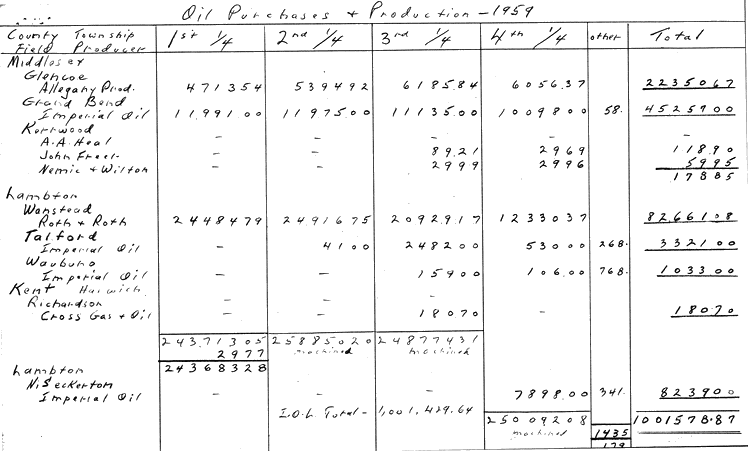 Oil Purchases & Production - 1959
County Township 1st 1/4 2nd 1/4 3rd 1/4 4th 1/4 other Total
Field Producer
Middlesex
Glencoe
Allegany Prod. 4713 54 5394 92 6185 84 6056.37 22350 67
Grand Bend
Imperial Oil 11,991 00 11975 00 11135 00 10098 00 58. 45257 00
Kerrwood
A.A. Heal - - - - -
John Freel - - 89.21 29 69 118 90
Nemic & Wilton - - 29 99 29 96 59 95
178 85
Lambton
Wanstead
Roth & Roth 24484 79 24916 75 20929.17 12330 37 82661.08
Talford
Imperial Oil - 41 00 2482 00 530 00 268. 3321 00
Waubuno
Imperial Oil - - 159 00 106.00 768. 1033 00
Kent Harwich
Richardson - -
Cross Gas & Oil - - 180 70 - 180 70
243713 05 258850 20 248774 31
29 77 machined machined
243683 28
Lambton
N. Seckerton
Imperial Oil - - - 7898.00 341. 8239 00
I.O.L. Total - 1,001,429.64
250092 08 1001578.87
machined 1435
179